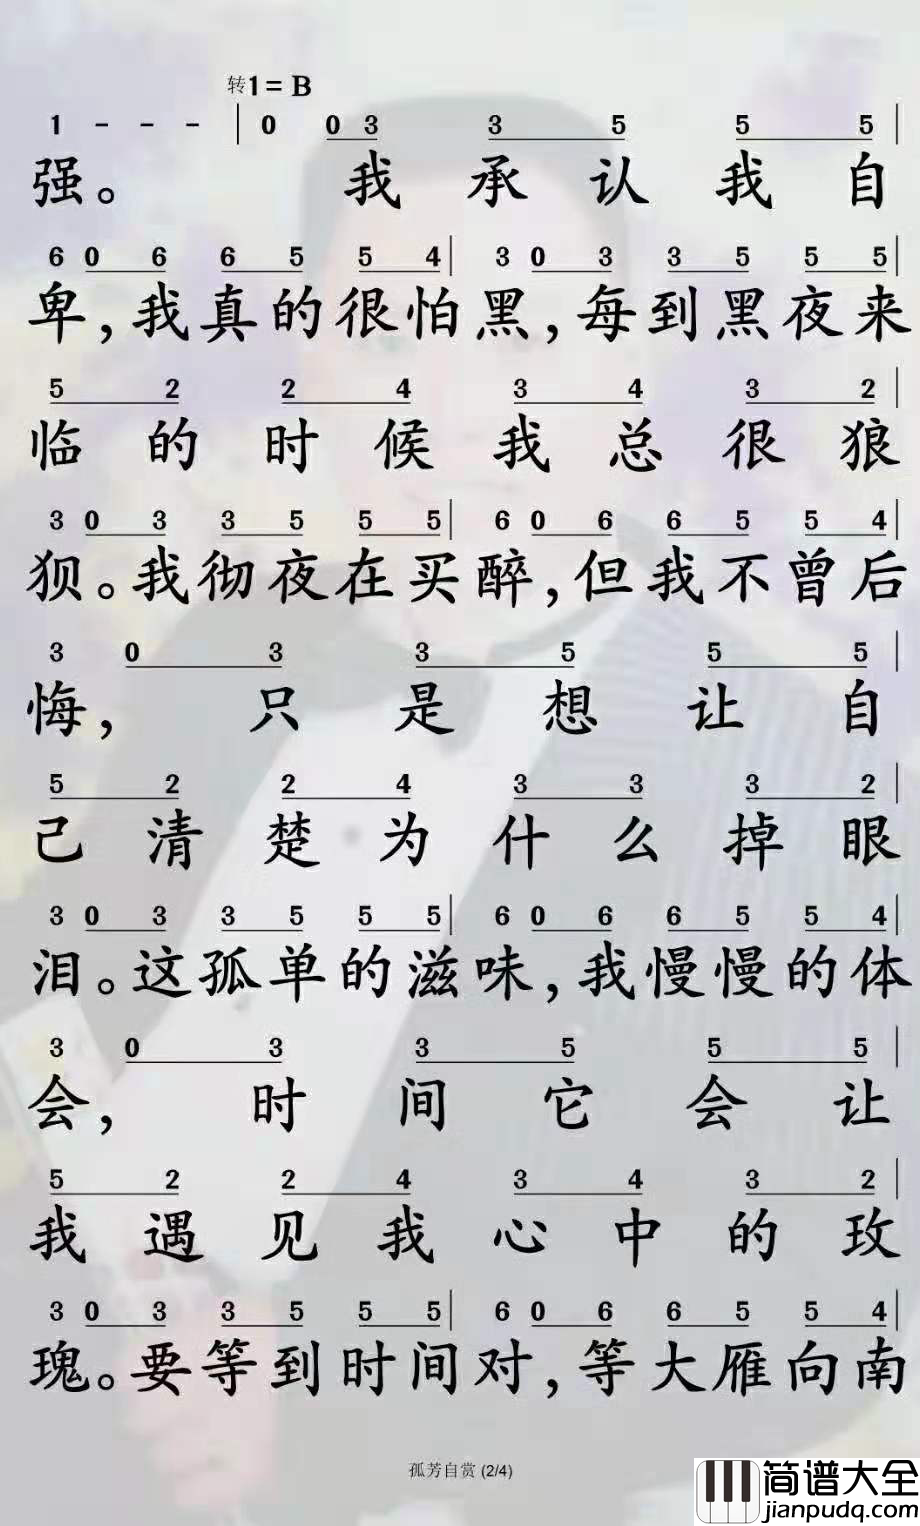 转1=B
1 - - - | 0 0 3 3 5 5 5 |
强。 我 承 认 我 自
6 0 6 6 5 5 4 | 3 0 3 3 5 5 5 |
卑，我真的很怕黑，每到黑夜来
5 2 2 4 3 4 3 2 |
临的时候我总很狼
3 0 3 3 5 5 5 | 6 0 6 6 5 5 4 |
狈。我彻夜在买醉，但我不曾后
3 0 3 3 5 5 5 |
悔， 只是想让自
5 2 2 4 3 3 3 2 |
己清楚为什么掉眼
3 0 3 3 5 5 5 | 6 0 6 6 5 5 4 |
泪。这孤单的滋味，我慢慢的体
3 0 3 3 5 5 5 |
会， 时间它会让
5 2 2 4 3 4 3 2 |
我遇见我心中的玫
3 0 3 3 5 5 5 | 6 0 6 6 5 5 4 |
瑰。要等到时间对，等大雁向南
孤芳自赏 (2/4)
简谱大全
jianpudq.com